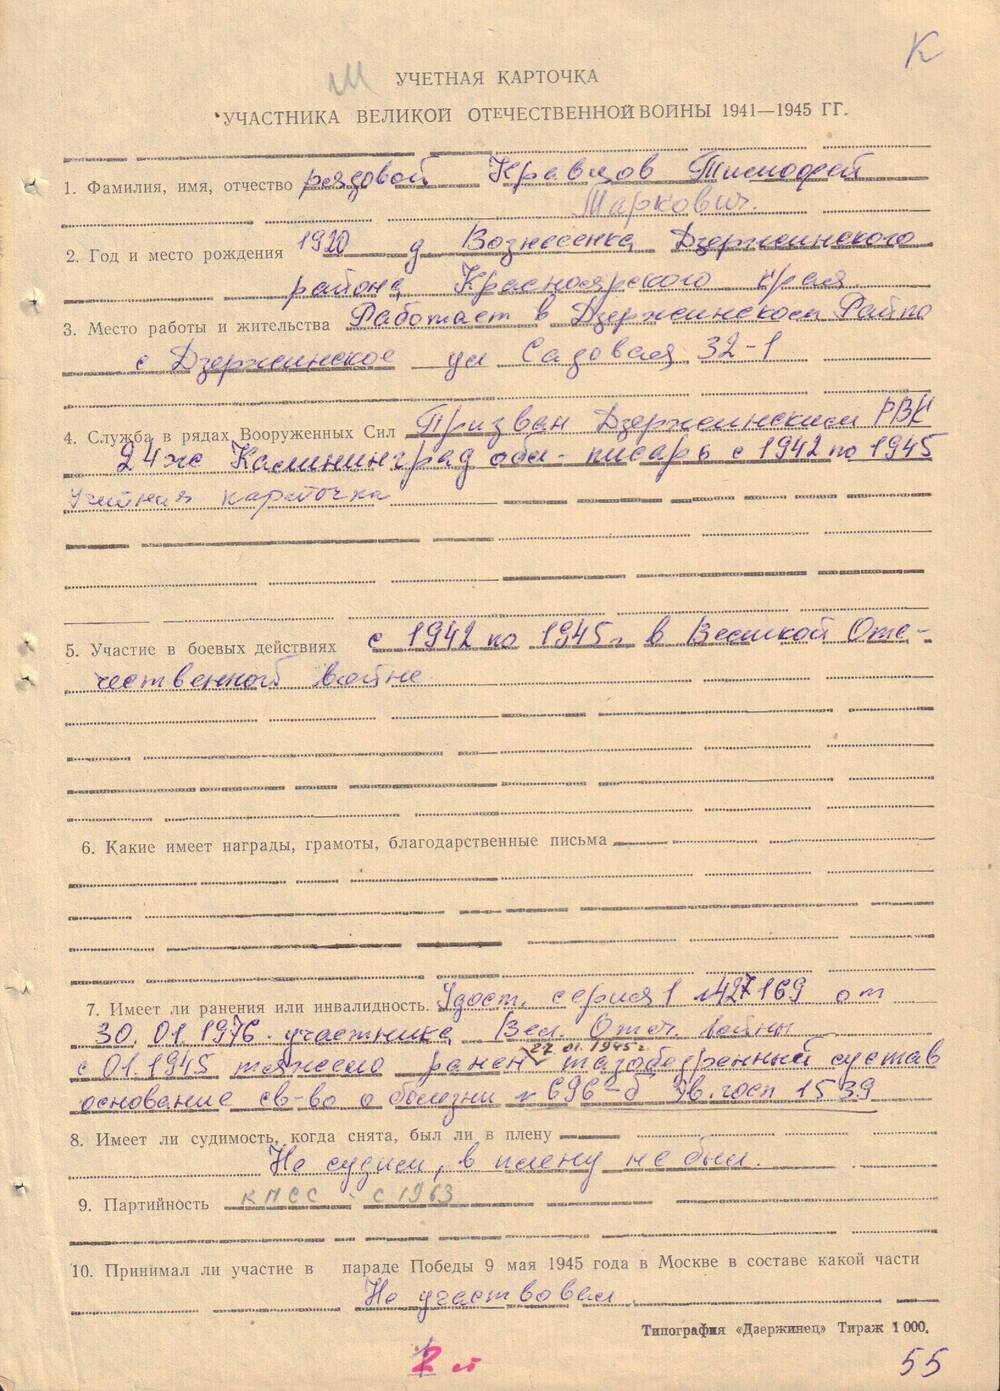 К
УЧЕТНАЯ КАРТОЧКА
УЧАСТНИКА ВЕЛИКОЙ ОТЕЧЕСТВЕННОЙ ВОЙНЫ 1941—1945 ГГ.
1. Фамилия, имя, отчество рядовой Кравцов Тимофей
Маркович.
2. Год и место рождения 1920 д Вознесенка Дзержинского
района Красноярского края.
3. Место работы и жительства Работает в Дзержинском Райпо
с Дзержинское ул Садовая 32-1
4. Служба в рядах Вооруженных Сил Призван Дзержинским РВК
24 Калининград обл - писарь с 1942 по 1945
Учетная карточка
5. Участие в боевых действиях с 1942 по 1945г в Великой Оте-
чественной войне
6. Какие имеет награды, грамоты, благодарственные письма
7. Имеет ли ранения или инвалидность. Удост. серия 1 №427169 от
30.01.1976. участника Вел. Отеч. войны
27.01.1945г
с 01.1945 тяжело ранен тазобедренный сустав
основание св-во о болезни № 696-б Эв. госп 1539
8. Имеет ли судимость, когда снята, был ли в плену
Не судим, в плену не был.
9. Партийность КПСС - с 1963
10. Принимал ли участие в параде Победы 9 мая 1945 года в Москве в составе какой части
Не участвовал
Типография «Дзержинец» Тираж 1 000.
55